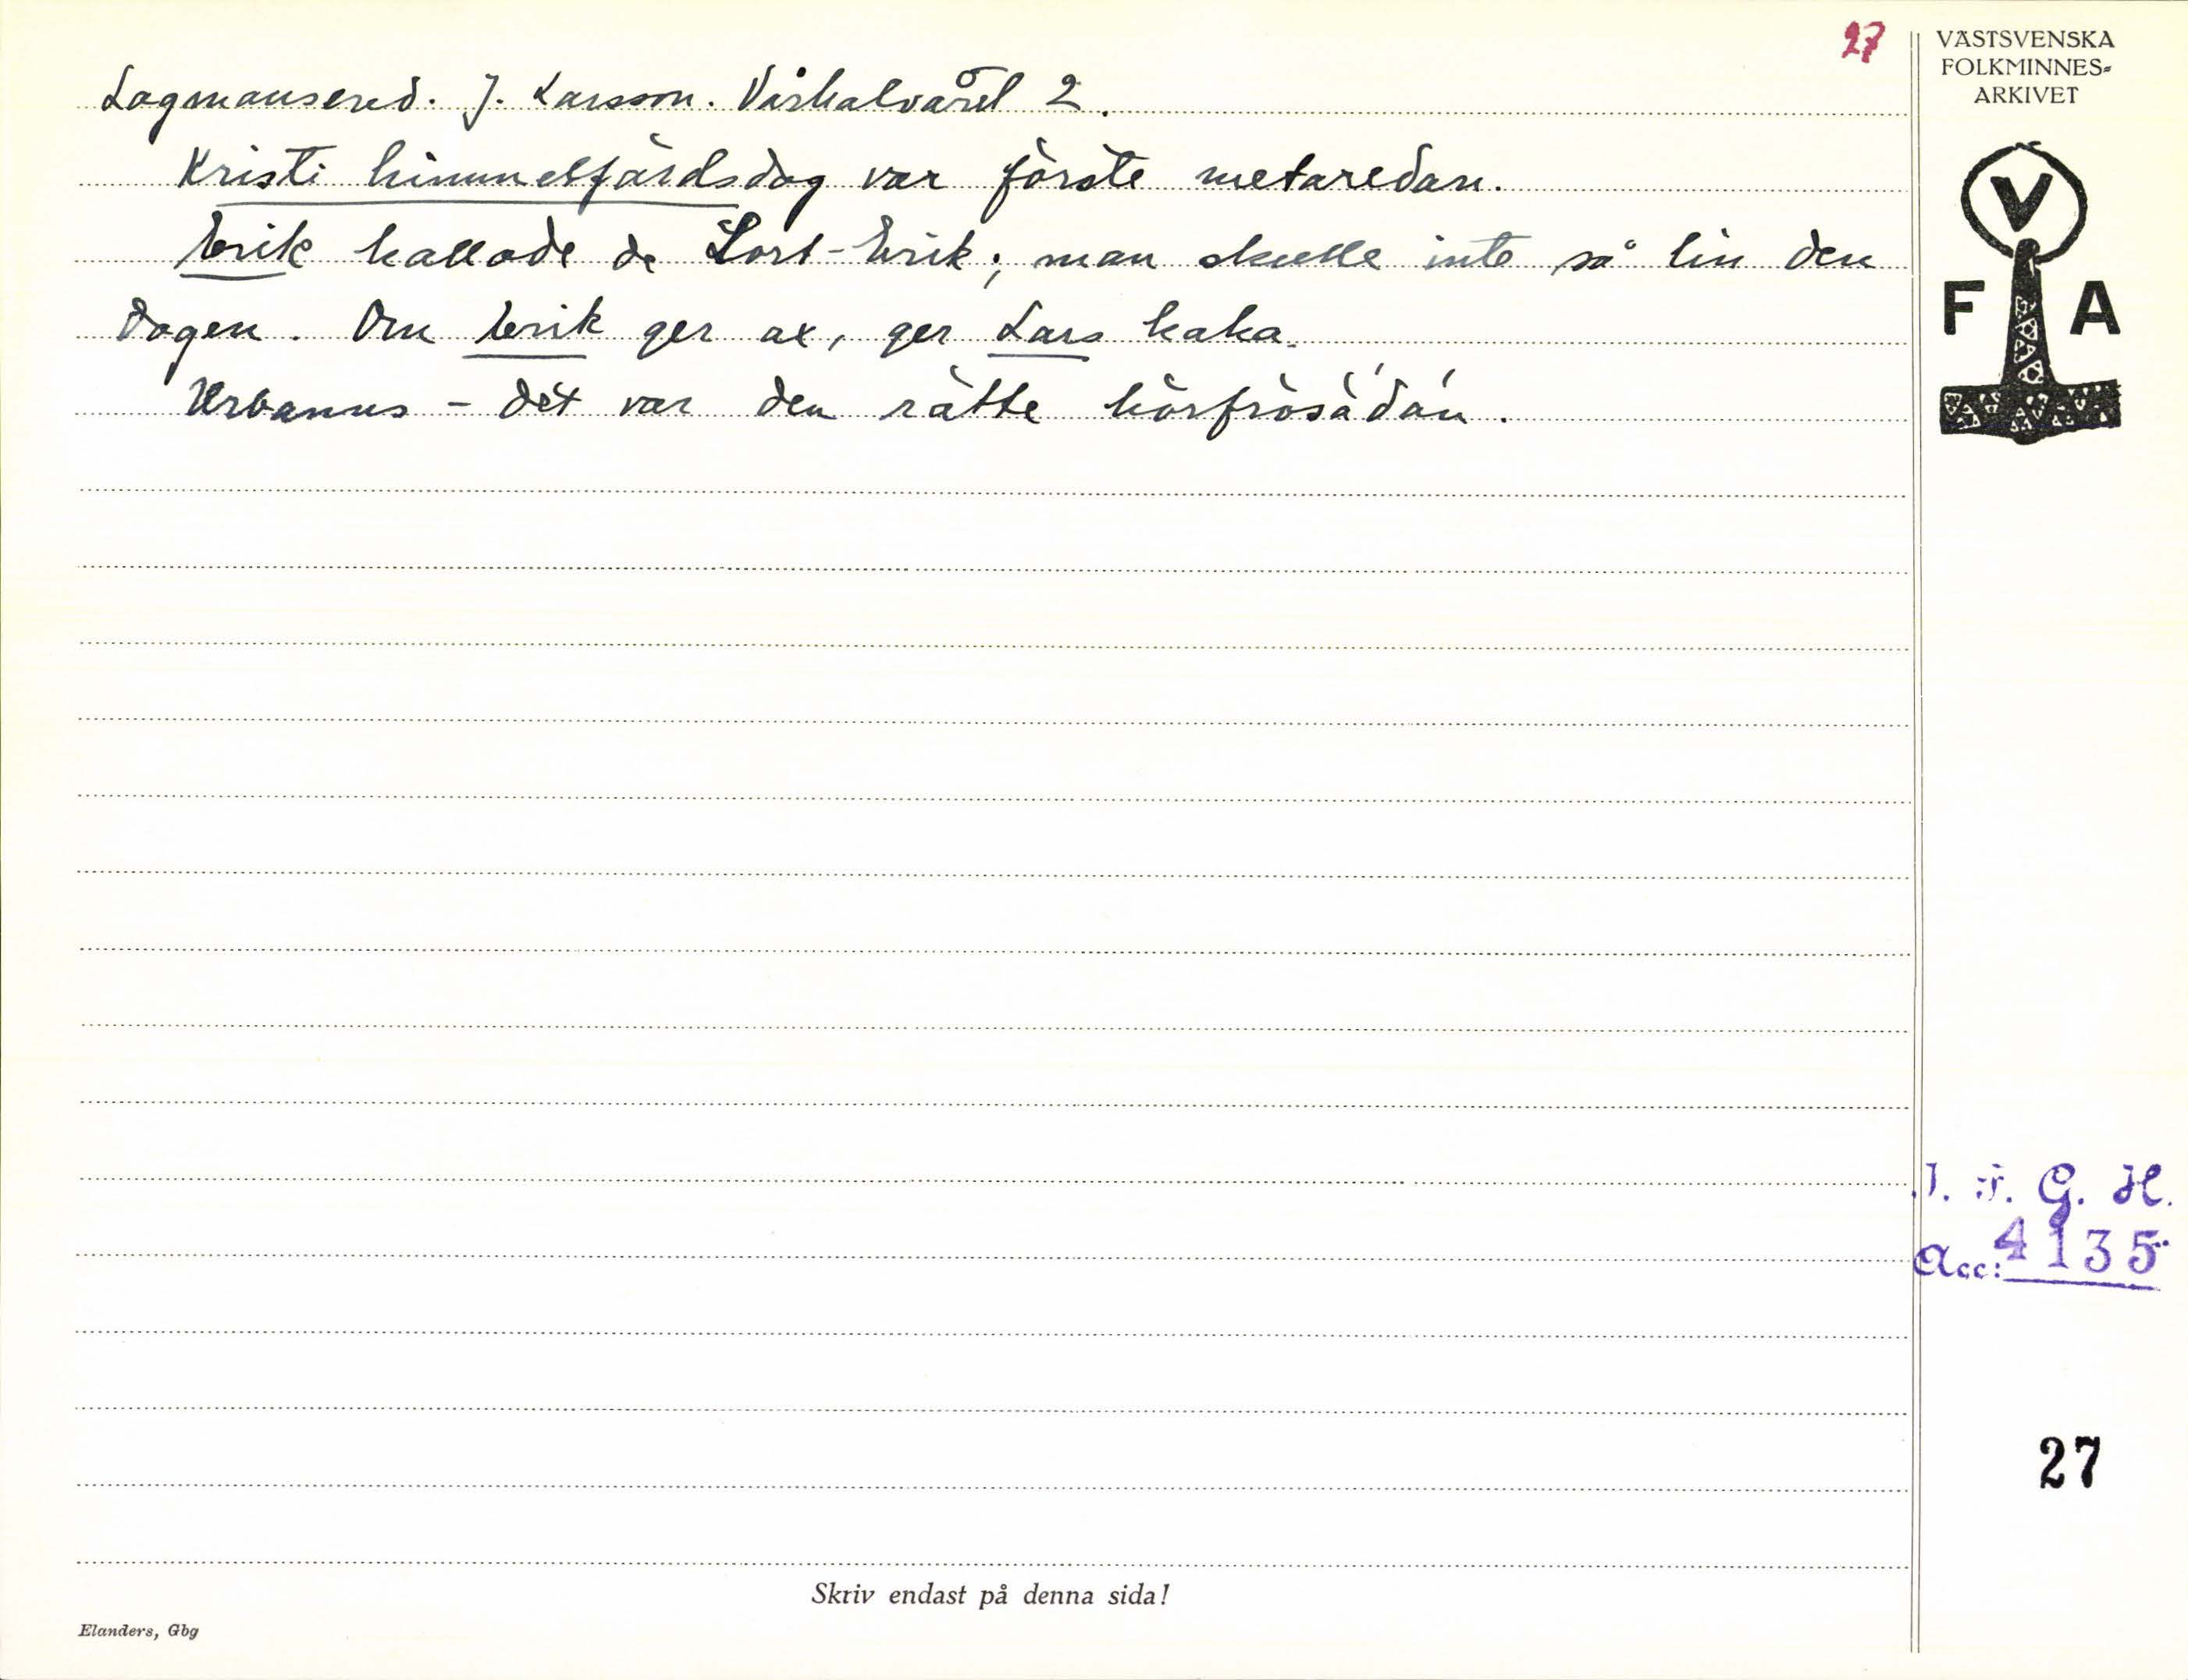 27
Lagmansered. J. Larsson. Vårhalvåret 2.
Kristi himmelsfärdsdag var förste metaredan.
Erik kallade de Lort-Erik; man skulle inte så lin den
dagen. Om Erik ger ax, ger Lars kaka.
Urbanus – det var den rätte hörfrösådán.
VÄSTSVENSKA
FOLKMINNES-
ARKIVET
V
F A
I. F. G. H.
Acc: 4135
27
Skriv endast på denna sida!
Elanders, Gbg